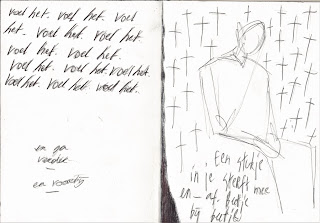 voel het. voel het. voel
het. voel het. voel het.
voel het. voel het.
voel het. voel het. voel het.
voel het. voel het. voel het.
en ga
verder.
en voorbij
Een stukje
in je sterft mee
en af. beetje
bij beetje